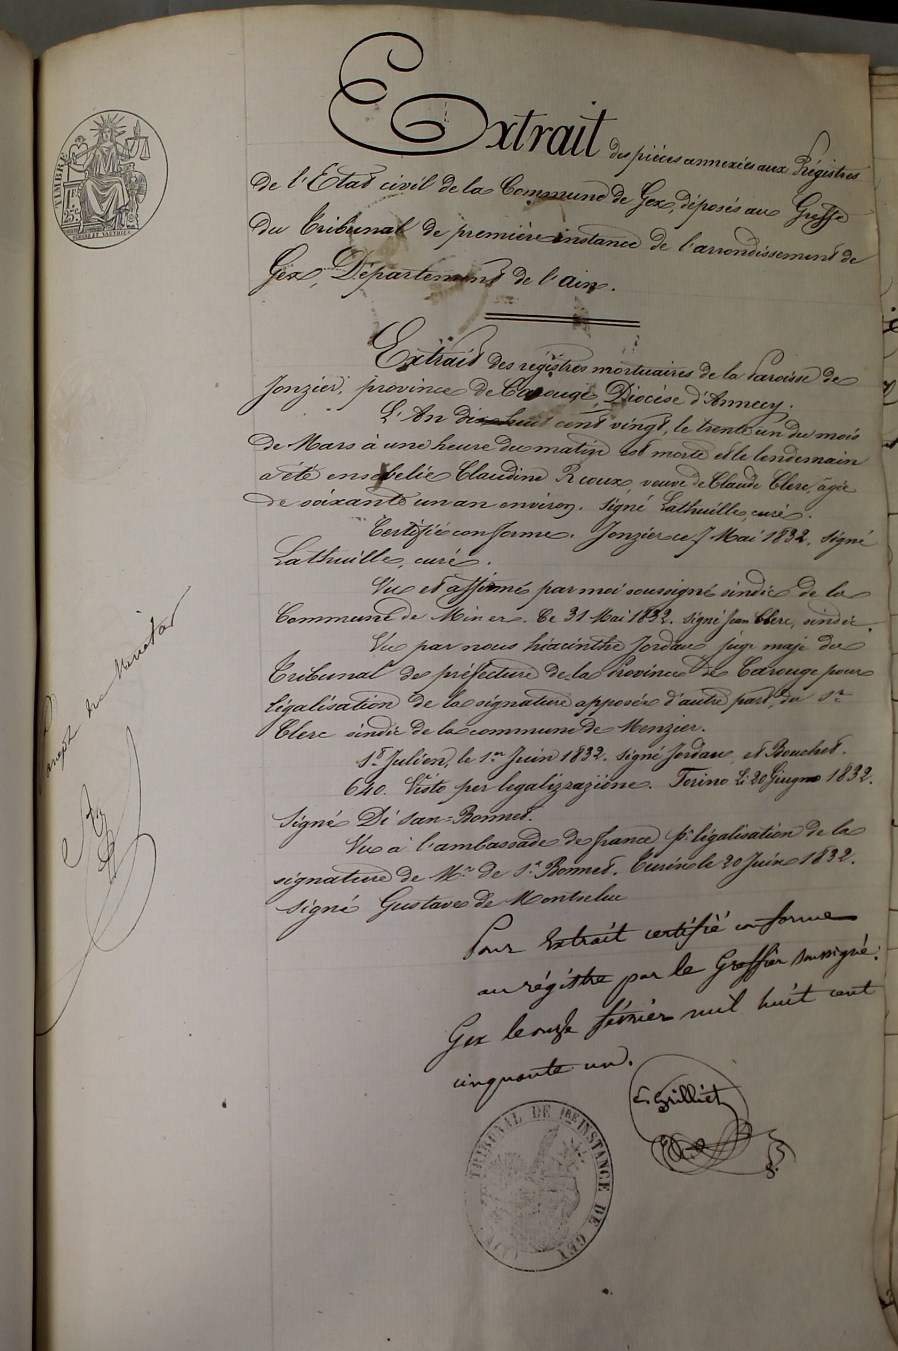 TIMBRE
1F 25c
Extrait des pièces annexées aux Régistres
de l'Etat civil de la Commune de Gex, déposés au Greffe
du Tribunal de première instance de l'arrondissement de
Gex, Département de l'ain.
Extrait des registres mortuaires de la Paroisse de
Jonzier, province de Carouge, Diocèse d'Annecy.
L'An dix huit cent vingt, le trente un du mois
de Mars à une heure du matin est morte et le lendemain
a été ensevelie Claudine Roux veuve de Claude Clerc, âgée
de soixante un an environ. Signé Lathuille, curé.
Certifié conforme. Jonzier ce 7 Mai 1832. Signé
Lathuille, curé.
Vu et affirmé par moi soussigné sindic de la
Commune de Minzier. Ce 31 Mai 1832. Signé Jean Clerc, sindic.
Vu par nous hiacinthe Jordan juge maje du
Tribunal de préfecture de la Province de Carouge pour
légalisation de la signature apposée d'autre part, du Sr
Clerc sindic de la commune de Menzier.
St Julien, le 1er Juin 1832. Signé Jordan, et Bouchet.
640. Visto per legalizzazione. Torino li 20 Giugno 1832.
Signé Di San-Bonnet.
Vu à l'ambassade de france pr légalisation de la
signature de Mr de St Bonnet. Turin le 20 Juin 1832.
Signé Gustave de Montebu
Pour Extrait certifié conforme
au régistre par le Greffier soussigné.
Gex le onze février mil huit cent
cinquante un.
Grilliet
TRIBUNAL DE 1RE INSTANCE DE GEX (AIN)